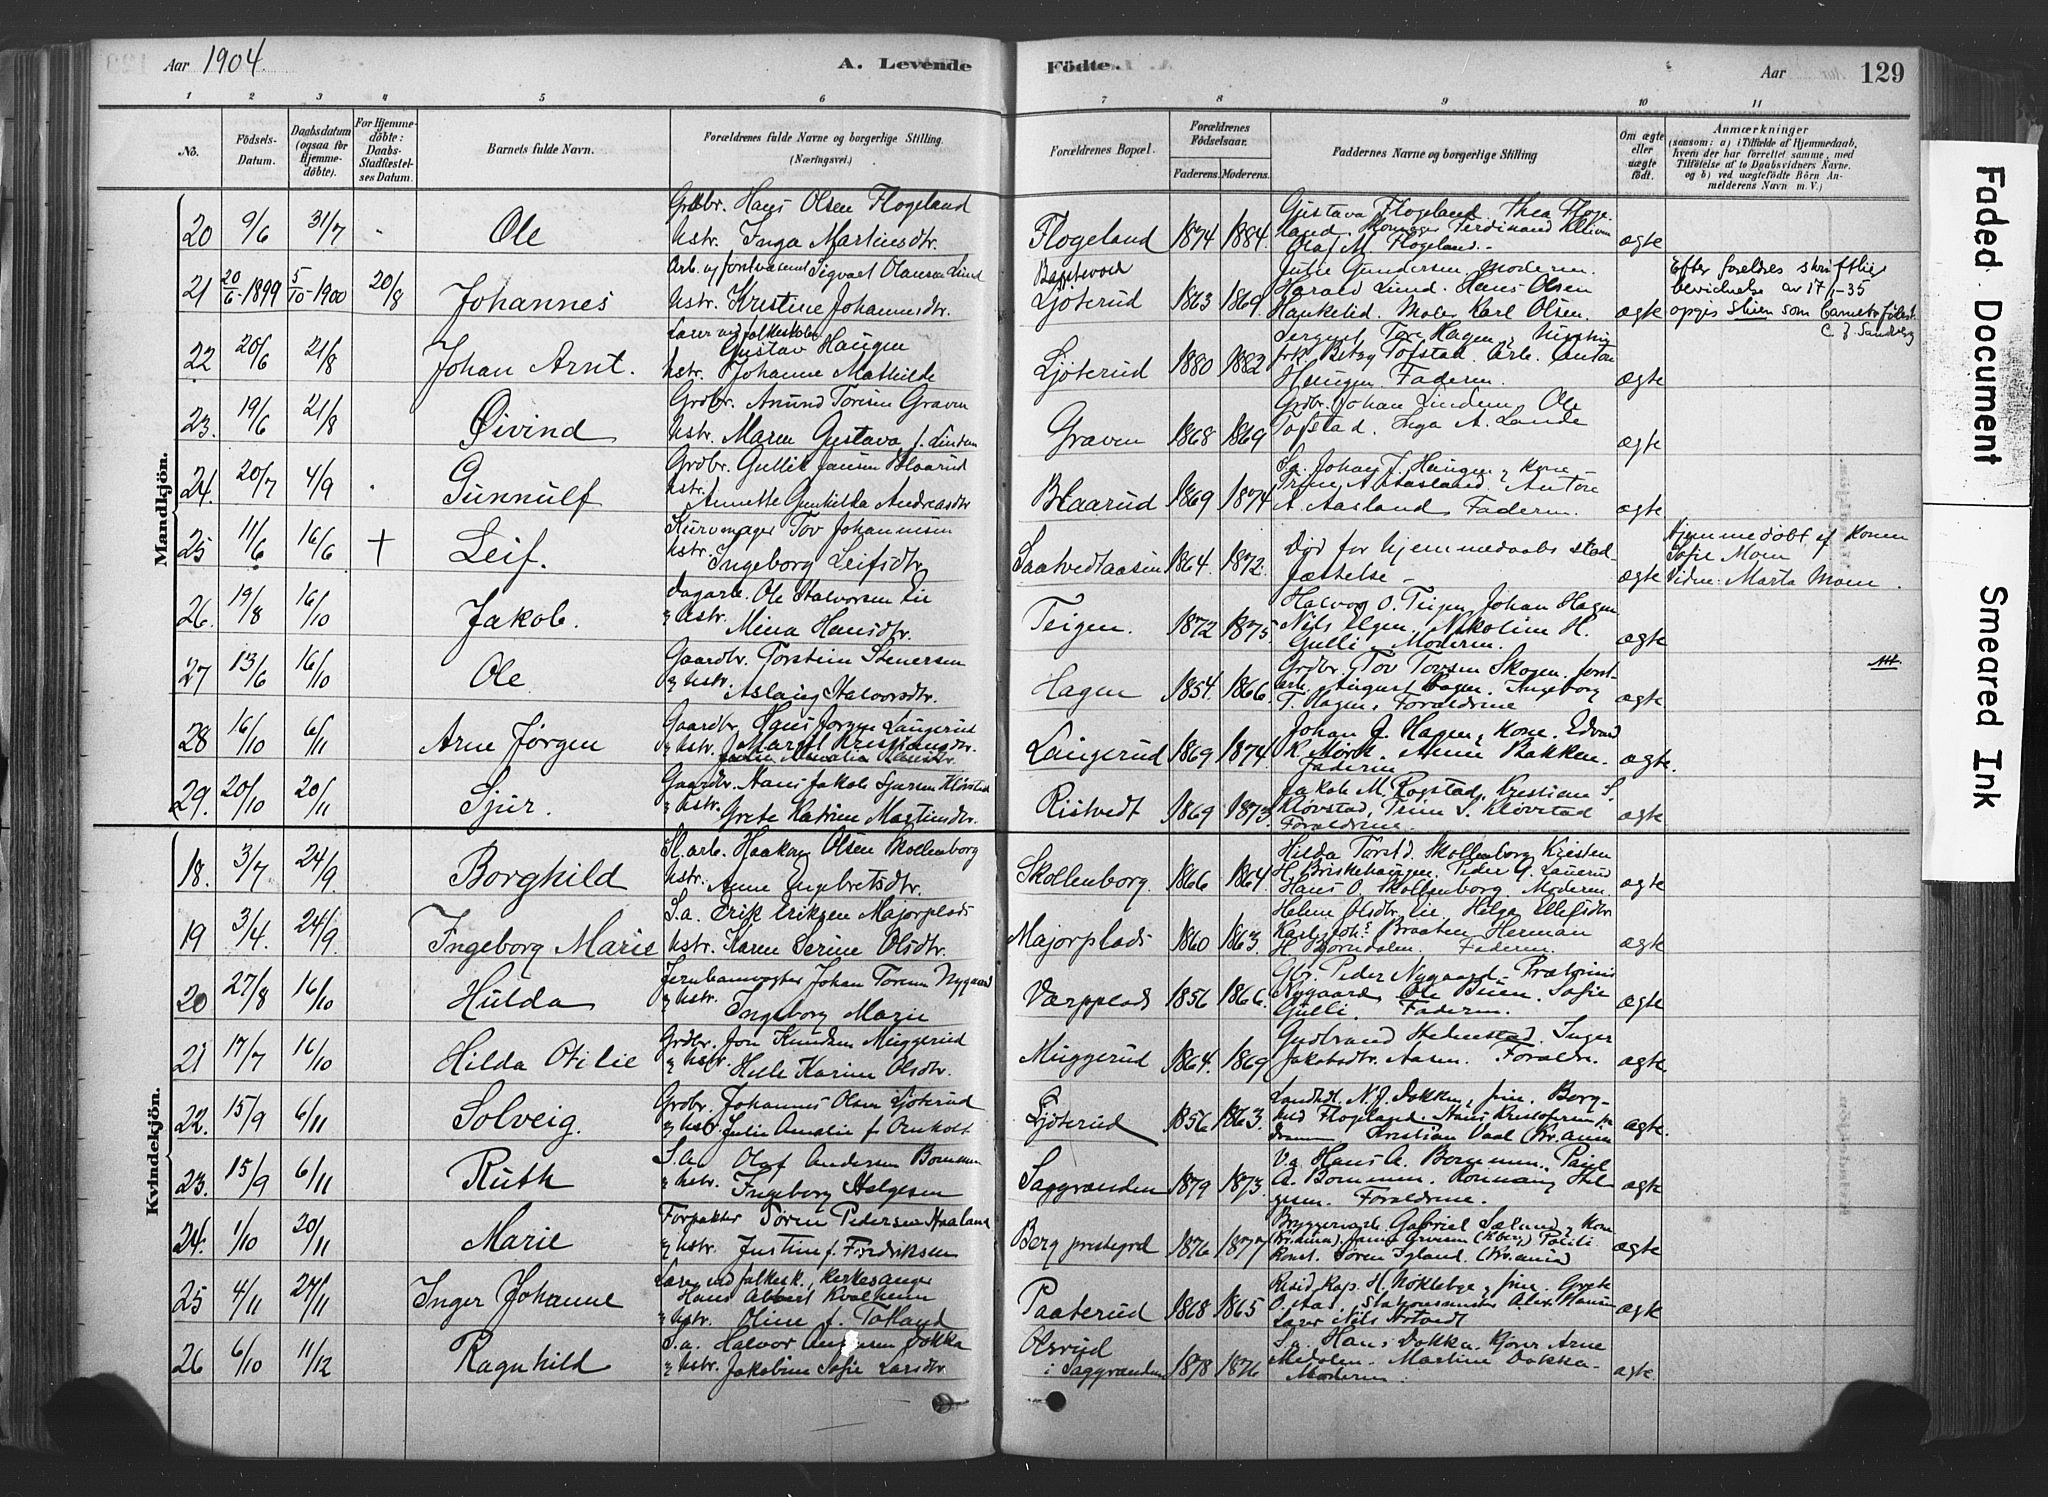 Aar 1904.
A. Levende
Födte.
Aar 129
1 2 3 4 5 6 7 8 9 10 11
No.
Födsels-Datum.
Daabsdatum (ogsaa for Hjemme-döbte).
For Hjemme-döbte: Daabs-Stadfæstel-ses Datum.
Barnets fulde Navn.
Forældrenes fulde Navne og borgerlige Stilling. (Næringsvei.)
Forældrenes Bopæl.
Forældrenes Födselsaar.
Faderens. Moderens.
Faddernes Navne og borgerlige Stilling
Om ægte eller uægte födt.
Anmærkninger
(saasom: a) i Tilfælde af Hjemmedaab, hvem der har forrettet samme, med Tilföielse af to Daabsvidners Navne. og b) ved uægtefödte Börn An-melderens Navn m. V.)
Mandkjön.
20 9/6 31/7 - Ole
Grdbr. Hans Olsen Flogeland
Hstr. Inga Martinsdtr.
Flogeland 1874 1884
Gustava Flogeland. Thea Floge-
land. Ferdinand
Olaf M. Flogeland.-
ægte
21 20/6-1899 5/10-1900 20/8 Johannes
Arb. Sigvart Olausen Lind
Hstr. Kristine Johannesdtr.
Ljøterud 1863 1869
Julie Gundersen. Moderen.
Harald Lund. Hans Olsen
Hankelid. Maler Karl Olsen.
ægte
Efter foreldres skriftlige
bevidnelse av 17/1-35
opgis Stien som barnets fødest.
22 20/6 21/8 Johan Arnt.
Lærer ved folkeskolen
Gustav Haugen
Hstr. Johanne Mathilde
Ljøterud 1880 1882
Sergent Tor Hagen,
frk. Betzy Tofstad. Arb. Anton
Haugen. Faderen.
ægte
23. 19/6 21/8 Øivind
Grdbr. Amund Toresen Graven
Hstr. Maren Gustava f. Linden
Graven 1868 1869
Grdbr. Johan Linden, Ole
Tofstad. Inga A. Lande
ægte
24. 20/7 4/9 Gunnulf
Grdbr. Gullik Jansen Blaarud
Hstr. Annette Gunhilda Andreasdtr
Blaarud 1869 1874
Sa. Johan J. Haugen & kone
Trine A. Aasland. Anton
A. Aasland Faderen.
ægte
25 11/6 16/6 + Leif.
Kurvmager Tov Johannesen
Hstr. Ingeborg Leifsdtr.
Saatvedtaasen 1864. 1872.
Død før hjemmedaabs stad-
fæstelse -
ægte
Hjemmedøbt af Konen
Sofie Moen
Vidne: Marta Moen.
26. 19/8 16/10 Jakob.
Dagarb. Ole Halvorsen Lie
& Hstr. Mina Hansdtr.
Teigen. 1872 1875
Halvor O. Teigen, Johan Hagen
Nils Elgen. Nikoline H.
Gulli. Moderen.
ægte
27 13/6 16/10 Ole
Gaardbr. Torstein Stenersen
& Hstr. Aslaug Halvorsdtr.
Hagen 1854. 1866.
Grdbr. Tov Tovsen Skogen, forst-
arb. August Hagen. Ingeborg
T. Hagen, Forældrene
ægte
28 16/10 6/11 Arne Jørgen
Gaardbr. Hans Jørgen Langerud
& Hstr.
Langerud 1869 1874
Johan J. Hagen & Kone. Edvard
R. Mørch. Anne Bakken.
Faderen
ægte.
29. 20/10 20/11 Sjur.
Gaardbr. Hans Jakob Sjursen Kløvstad
& Hstr. Grete Katrine Martinsdtr.
Ristvedt 1869 1873
Jakob M. Rogstad, Kristian S.
Kløvstad, Trine S. Kløvstad
Forældrene.
ægte
Kvindekjön.
18. 3/7 24/9 Borghild
Sl. arb. Haakon Olsen Skollenborg
Hstr. Anne Engebretsdtr.
Skollenborg. 1866 1864
Hilda Torstd. Skollenborg Kristen
H. Briskehaugen. Peder G. Laverud
Hans O. Skollenborg. Moderen.
ægte
19 3/4. 24/9. Ingeborg Marie
S.a. Erik Eriksen Majorplads
Hstr. Karen Serine Olsdtr.
Majorplads 1860 1863
Helene Olsdtr. Lie, Helga Ellefsdtr
Karl Johs. Braaten Herman
H. Bjørndalen. Faderen.
ægte
20 27/8 16/10 Hulda
Jernbanevogter Johan Toresen Nygaard
& Hstr. Ingeborg Marie
Værpplads 1856 1866.
Gbr. Peder Nygaard.
Nygaard, Ole Buen. Sofie
Gulli. Faderen.
ægte
21 17/7 16/10 Hilda Otilie
Grdbr. Jon Knudsen Muggerud
& Hstr. Helle Karine Olsdtr.
Muggerud 1864. 1869
Gudbrand Helmstad, Inger
Jakobsdtr. Aasen. Forældr.
ægte
22. 15/9 6/11 Solveig.
Grdbr. Johannes Olsen Ljøterud
& Hstr. Julie Amalie f. Ornholt
Ljøterud 1856 1863.
Landhdl. N. J. Dokken, frue. Borg-
hild Flogeland. Hans Kristofersen fra
Drammen Kristian Vaal (Kr.ania
ægte.
23. 15/9 6/11 Ruth
S.a. Olaf Andersen Bommen
& Hstr. Ingeborg Helgesen
Saggrenden 1879 1873.
V.a. Hans A. Bommen. Paul
A. Bommen. Romaug Hel-
gesen. Forældrene.
ægte
24. 1/10 20/11 Marie
Forpakter Søren Pedersen Haaland
& Hstr. Justine f. Fredriksen
Berg prestegrd 1876 1877
Gabriel Sæland & Kone
Konst. Søren Igland. (Kr.ania)
ægte
25 4/11 27/11 Inger Johanne
Lærer ved folkesk., kirkesanger
Hans Albert Kvalheim
& Hstr. Oline f. Totland
Paaterud 1868 1865
Resid. Kap. H. Nøklebye & frue. Grete
O. Aas, Stationsmester Alex. Hansen
Lærer Nils Hotvedt
ægte
26 6/10 11/12 Ragnhild
S.a. Halvor Andersen Dokka
& Hstr. Jakobine Sofie Larsdtr.
Olsrud
i Saggrenden 1878 1876
S.a. Hans Dokka. Kjører Arne
Medalen. Martine Dokka.
Moderen.
ægte.
Faded Document
Smeared Ink